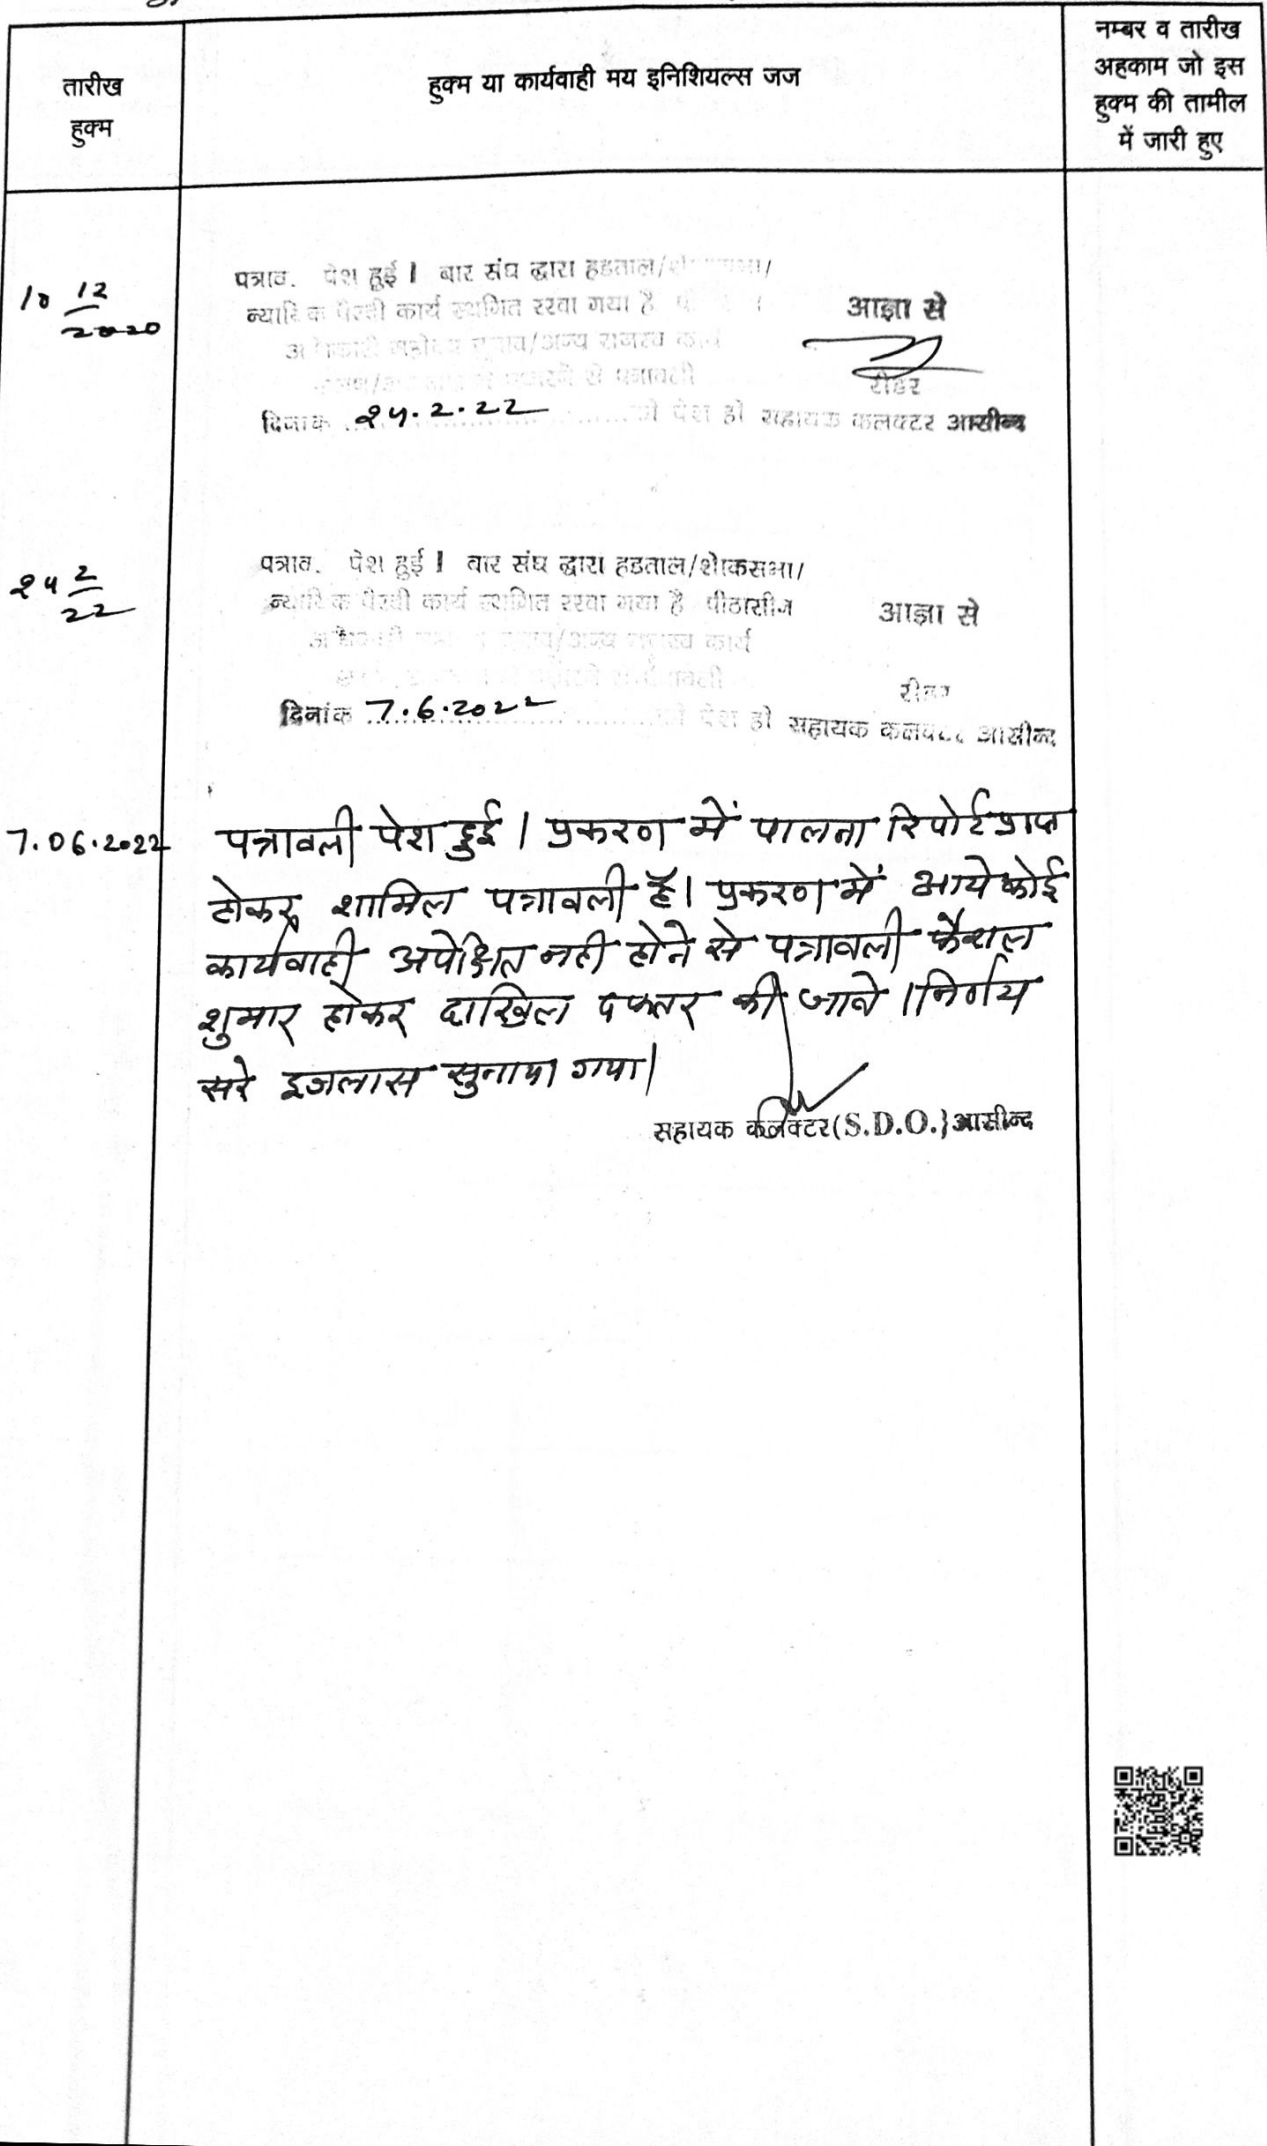 तारीख
हुक्म
हुक्म या कार्यवाही मय इनिशियल्स जज
नम्बर व तारीख
अहकाम जो इस
हुक्म की तामील
में जारी हुए
10 12/2020
पत्राव. पेश हुई । बार संघ द्वारा हडताल/
कार्य स्थगित रखा गया है
आज्ञा से
/अन्य राजस्व कार्य
रीडर
दिनांक 24.2.22 को पेश हो सहायक कलक्टर आसीन्द
24 2/22
पत्राव. पेश हुई । बार संघ द्वारा हडताल/शोकसभा/
न्यायिक पैरवी कार्य स्थगित रखा गया है पीठासीन
आज्ञा से
/अन्य राजस्व कार्य
रीडर
दिनांक 7.6.2022 को पेश हो सहायक कलक्टर आसीन्द
7.06.2022 पत्रावली पेश हुई । प्रकरण में पालना रिपोर्ट प्राप्त
होकर शामिल पत्रावली है। प्रकरण में आगे कोई
कार्यवाही अपेक्षित नही होने से पत्रावली फैशल
शुमार होकर दाखिल दफ्तर की जावे । निर्णय
सरे इजलास सुनाया गया।
सहायक कलक्टर(S.D.O.)आसीन्द